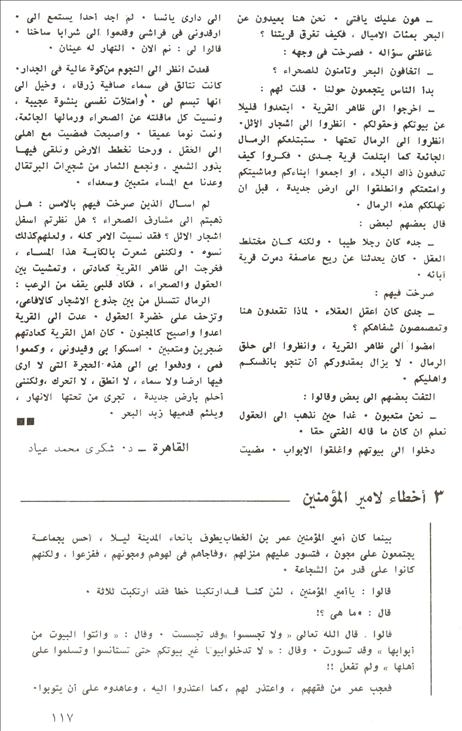 ـ هون عليك يافتى ٠ نحن هنا بعيدون عن
البحر بمئات الاميال ، فكيف تغرق قريتنا ؟
غاظنى سؤاله ٠ فصرخت فى وجهه :
ـ اتخافون البحر وتأمنون للصحراء ؟
بدأ الناس يتجمعون حولنا ٠ قلت لهم :
ـ اخرجوا الى ظاهر القرية ٠ ابتعدوا قليلا
عن بيوتكم وحقولكم ٠ انظروا الى أشجار الأثل٠
انظروا الى الرمال تحتها ٠ ستبتلعكم الرمال
الجائعة كما ابتلعت قرية جدى ٠ فكروا كيف
تدفعون ذاك البلاء ، او اجمعوا ابناءكم وماشيتكم
وامتعتكم وانطلقوا الى ارض جديدة ، قبل ان
تهلككم هذه الرمال ٠
قال بعضهم لبعض :
ـ جده كان رجلا طيبا ٠ ولكنه كان مختلط
العقل ٠ كان يعدثنا عن ريح عاصفة دمرت قرية
آبائه ٠
صرخت فيهم :
ـ جدى كان اعقل العقلاء ٠ لماذا تقعدون هنا
وتمصمصون شفاهكم ؟
امضوا الى ظاهر القرية ، وانظروا الى حلق
الرمال ٠ لا يزال بمقدوركم أن تنجو بانفسكم
واهليكم ٠
التفت بعضهم الى بعض وقالوا :
ـ نحن متعبون ٠ غدا حين نذهب الى الحقول
نعلم ان كان ما قاله الفتى حقا ٠
دخلوا الى بيوتهم واغلقوا الابواب ٠ مضيت
الى دارى يائسا ٠ لم اجد أحدا يستمع الى ٠
ارقدونى فى فراشى وقدموا الى شرابا ساخنا ٠
قالوا لى : نم الان ٠ النهار له عينان ٠
قعدت انظر الى النجوم من كوة عالية فى الجدار٠
كانت تتألق فى سماء صافية زرقاء ، وخيل الى
انها تبسم لى ٠ وامتلأت نفسى بنشوة عجيبة ،
ونسيت كل ماقلته عن الصحراء ورمالها الجائعة،
ونمت نوما عميقا ٠ واصبحت فمضيت مع اهلى
الى الحقل ، ورحنا نخطط الارض ونلقى فيها
بذور الشعير . ونجمع الثمار من شجيرات البرتقال
وعدنا مع المساء متعبين وسعداء ٠
لم اسأل الذين صرخت فيهم بالامس : هل
ذهبتم الى مشارف الصحراء ؟ هل نظرتم اسفل
اشجار الاثل ؟ فقد نسيت الامر كله ، ولعلهم كذلك
نسوه ٠ ولكننى شعرت بالكآبة هذا المساء ،
فخرجت الى ظاهر القرية كعادتى ، وتمشيت بين
الحقول والصحراء ، فكاد قلبى يقف من الرعب :
الرمال تتسلل من بين جذوع الاشجار كالافاعى،
وتزحف على خضرة الحقول ٠ عدت الى القرية
اعدوا واصيح كالمجنون ٠ كان اهل القرية كعادتهم
ضجرين ومتعبين ٠ امسكوا بى وقيدونى ، وكمموا
فمى ، ودفعوا بى الى هذه الحجرة التى لا ارى
فيها ارضا ولا سماء ، لا انطق ، لا اتحرك ، ولكننى
أحلم بأرض جديدة ، تجرى من تحتها الانهار ،
ويلثم قدميها زبد البحر ٠
القاهرة ـ د٠ شكرى محمد عياد
٣ أخطاء لامير المؤمنين
بينما كان أمير المؤمنين عمر بن الخطاب يطوف بانحاء المدينة ليلا ، أحس بجماعة
يجتمعون على مجون ، فتسور عليهم منزلهم ،وفاجأهم فى لهوهم ومجونهم ، ففزعوا ، ولكنهم
كانوا على قدر من الشجاعة ٠
قالوا : ياأمير المؤمنين ، لئن كنا قد ارتكبنا خطأ فقد ارتكبت ثلاثة ٠
قال : ما هى ؟!
قالوا . قال الله تعالى « ولا تجسسوا » وقد تجسست ٠ وقال : « وائتوا البيوت من
أبوابها » وقد تسورت ٠ وقال : « لا تدخلوا بيوتا غير بيوتكم حتى تستأنسوا وتسلموا على
أهلها » ولم تفعل !!
فعجب عمر من فقههم ، واعتذر لهم ،كما اعتذروا اليه ، وعاهدوه على أن يتوبوا٠
١١٧